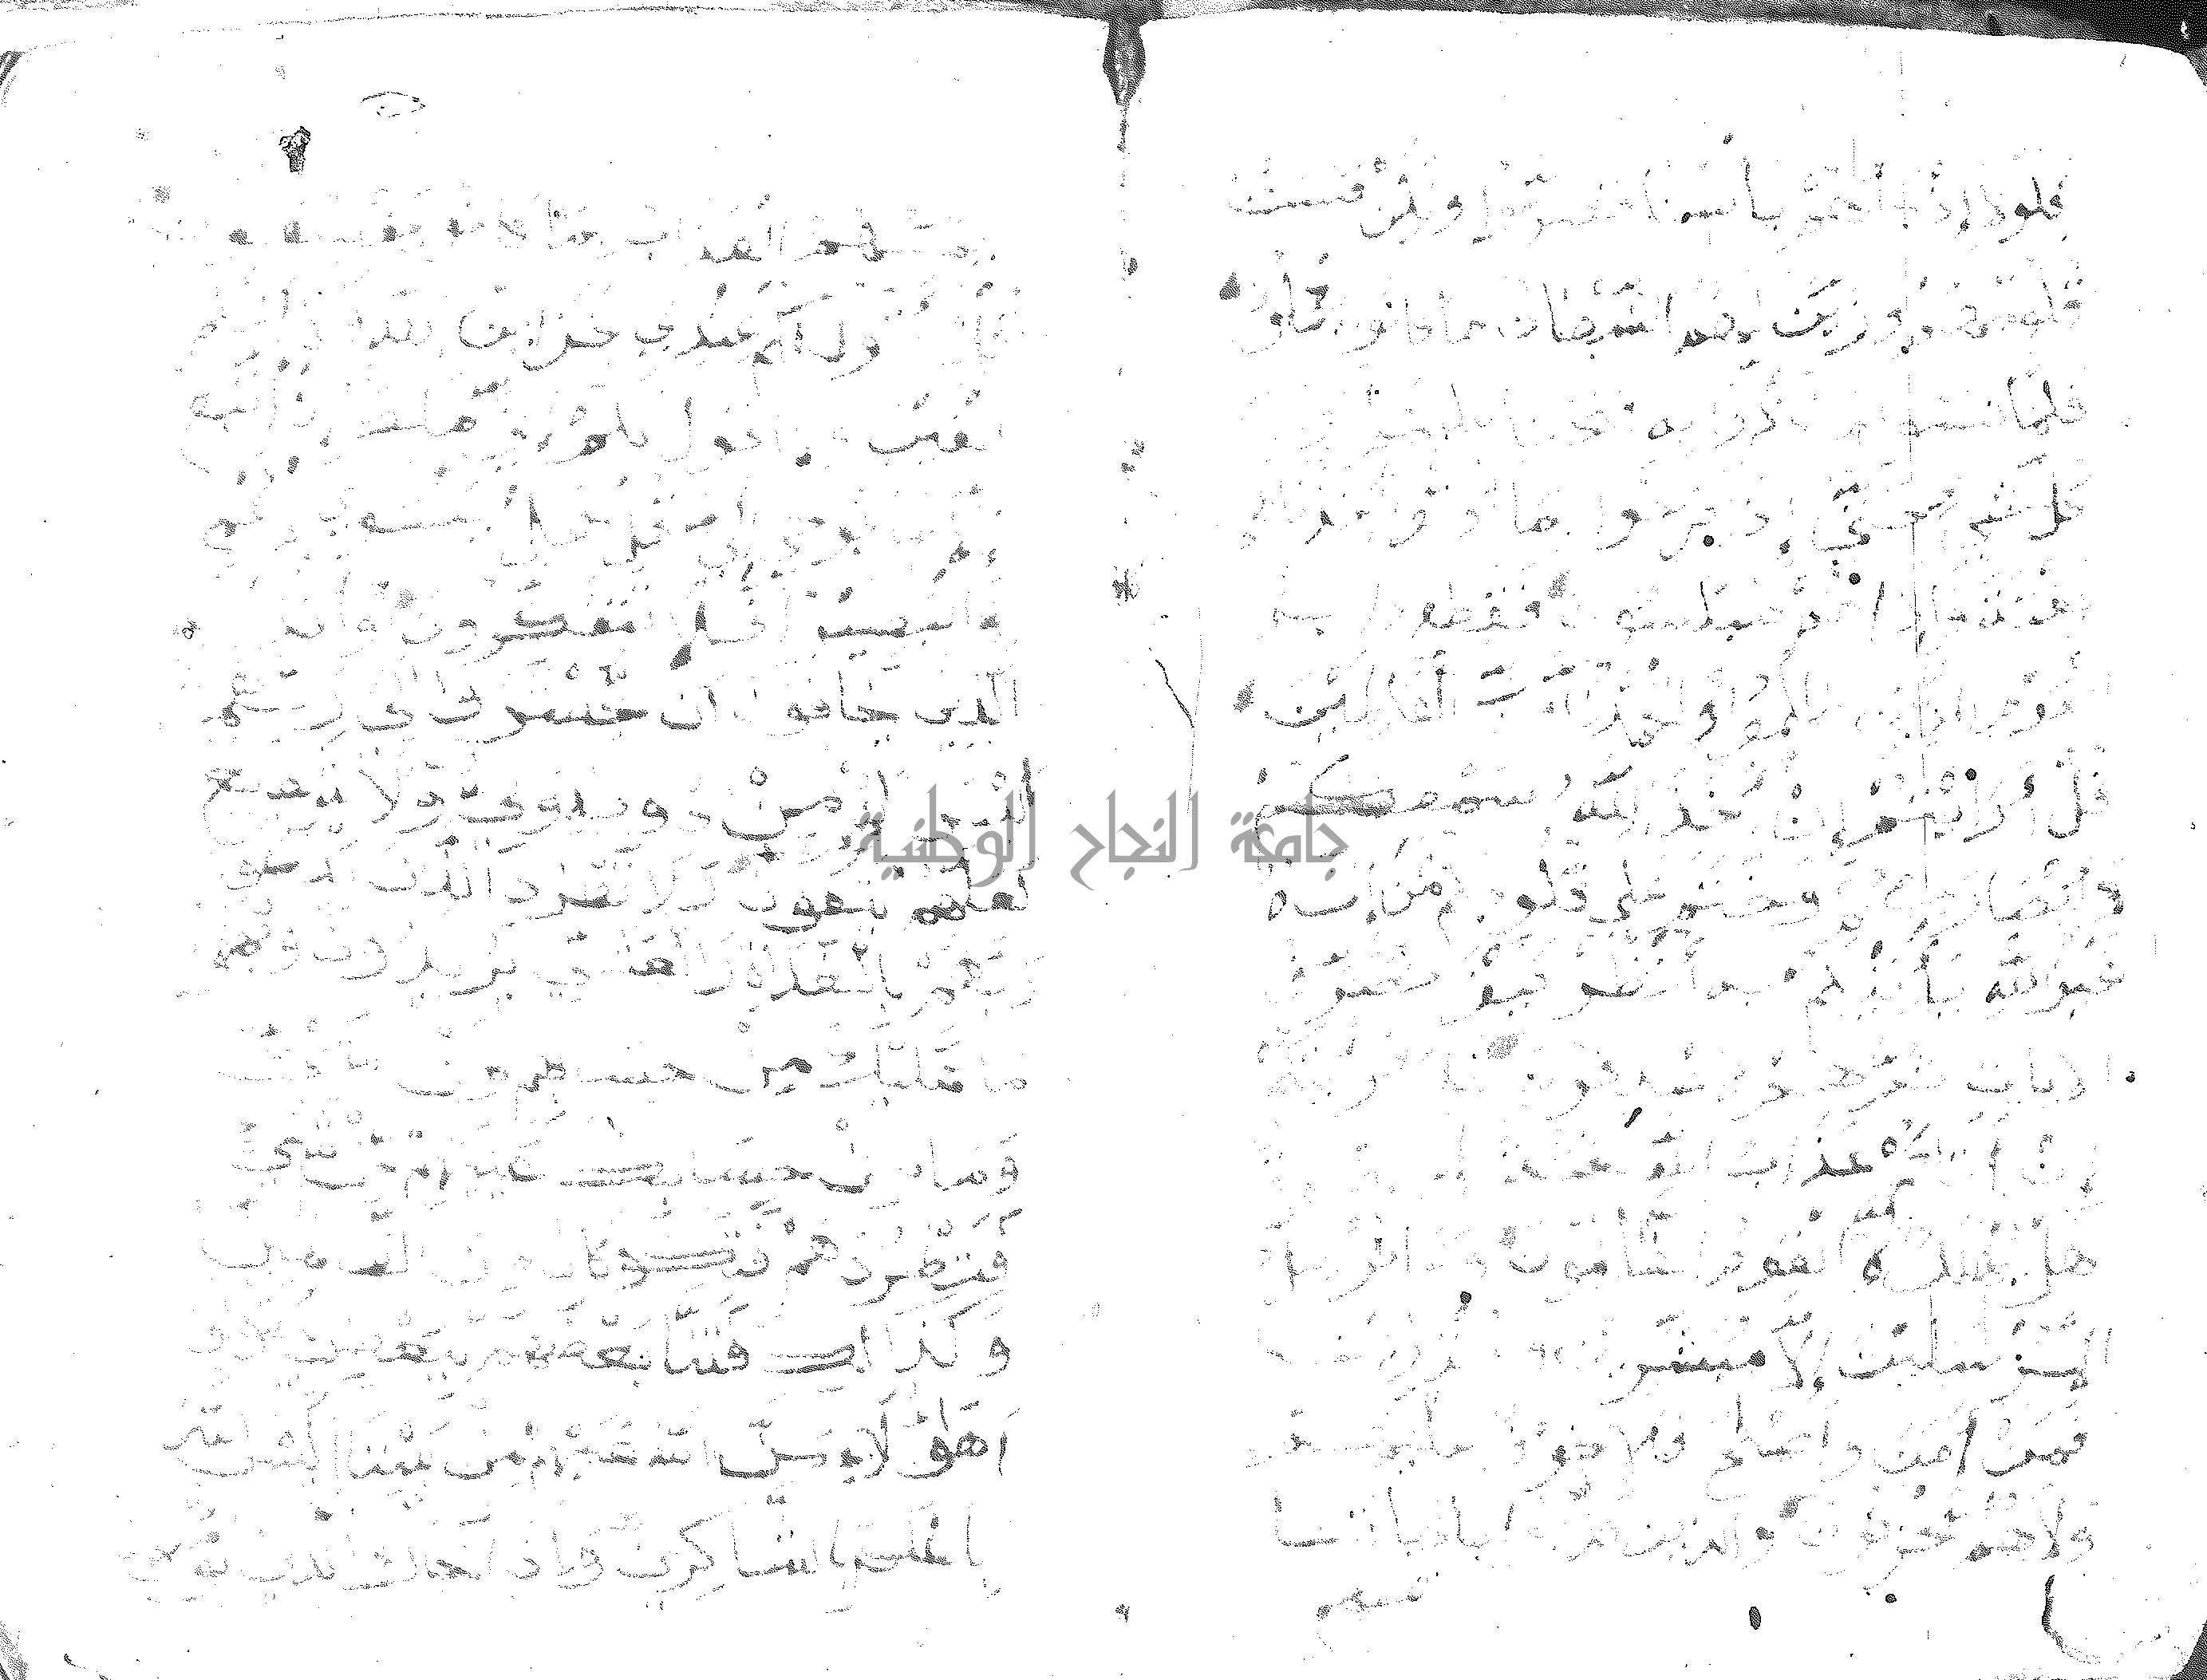 فلولا إذ جاءهم بأسنا تضرعوا ولكن قست
قلوبهم وزين لهم الشيطان ما كانوا يعملون
فلما نسوا ما ذكروا به فتحنا عليهم أبواب
كل شيء حتى إذا فرحوا بما أوتوا أخذناهم
بغتة فإذا هم مبلسون فقطع دابر
القوم الذين ظلموا والحمد لله رب العالمين
قل أرأيتم إن أخذ الله سمعكم
وأبصاركم وختم على قلوبكم من إله
غير الله يأتيكم به انظر كيف نصرف
الآيات ثم هم يصدفون قل أرأيتكم
إن أتاكم عذاب الله بغتة أو جهرة
هل يهلك إلا القوم الظالمون وما نرسل
المرسلين إلا مبشرين ومنذرين
فمن آمن وأصلح فلا خوف عليهم
ولا هم يحزنون والذين كذبوا بآياتنا
يمسهم
يمسهم العذاب بما كانوا يفسقون
قل لا أقول لكم عندي خزائن الله ولا أعلم
الغيب ولا أقول لكم إني ملك إن أتبع
إلا ما يوحى إلي قل هل يستوي الأعمى
والبصير أفلا تتفكرون وأنذر به
الذين يخافون أن يحشروا إلى ربهم
ليس لهم من دونه ولي ولا شفيع
لعلهم يتقون ولا تطرد الذين يدعون
ربهم بالغداة والعشي يريدون وجهه
ما عليك من حسابهم من شيء
وما من حسابك عليهم من شيء
فتطردهم فتكون من الظالمين
وكذلك فتنا بعضهم ببعض ليقولوا
أهؤلاء من الله عليهم من بيننا أليس الله
بأعلم بالشاكرين وإذا جاءك الذين يؤمنون
جامعة النجاح الوطنية